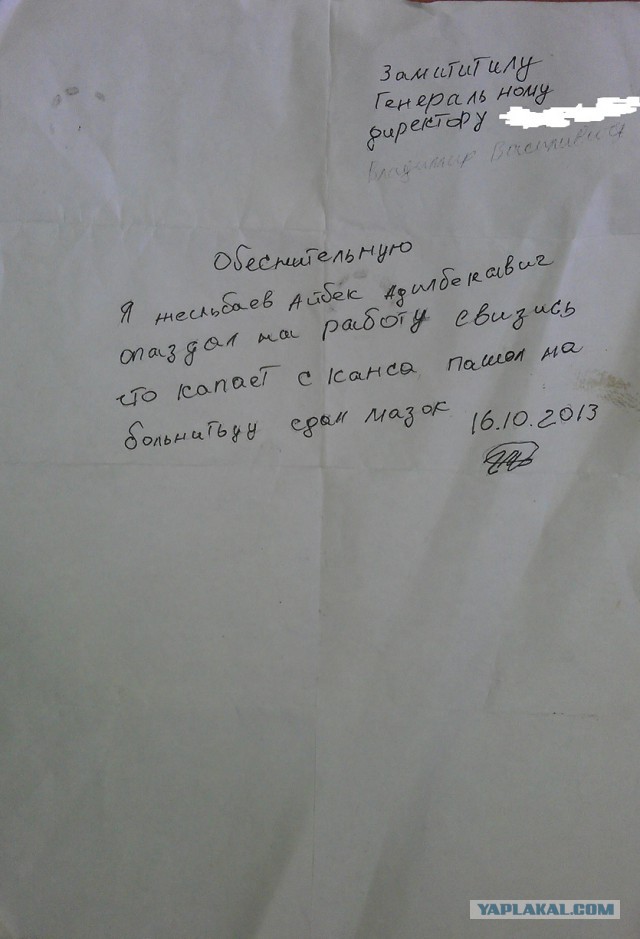 Замититилу
Генеральному
директору
Владимир
Обеснительную
Я Айбек Адилбекавич
опаздал на работу свизись
что капает с канса пашол на
больнитьуу сдал мазок 16.10.2013
YAPLAKAL.COM